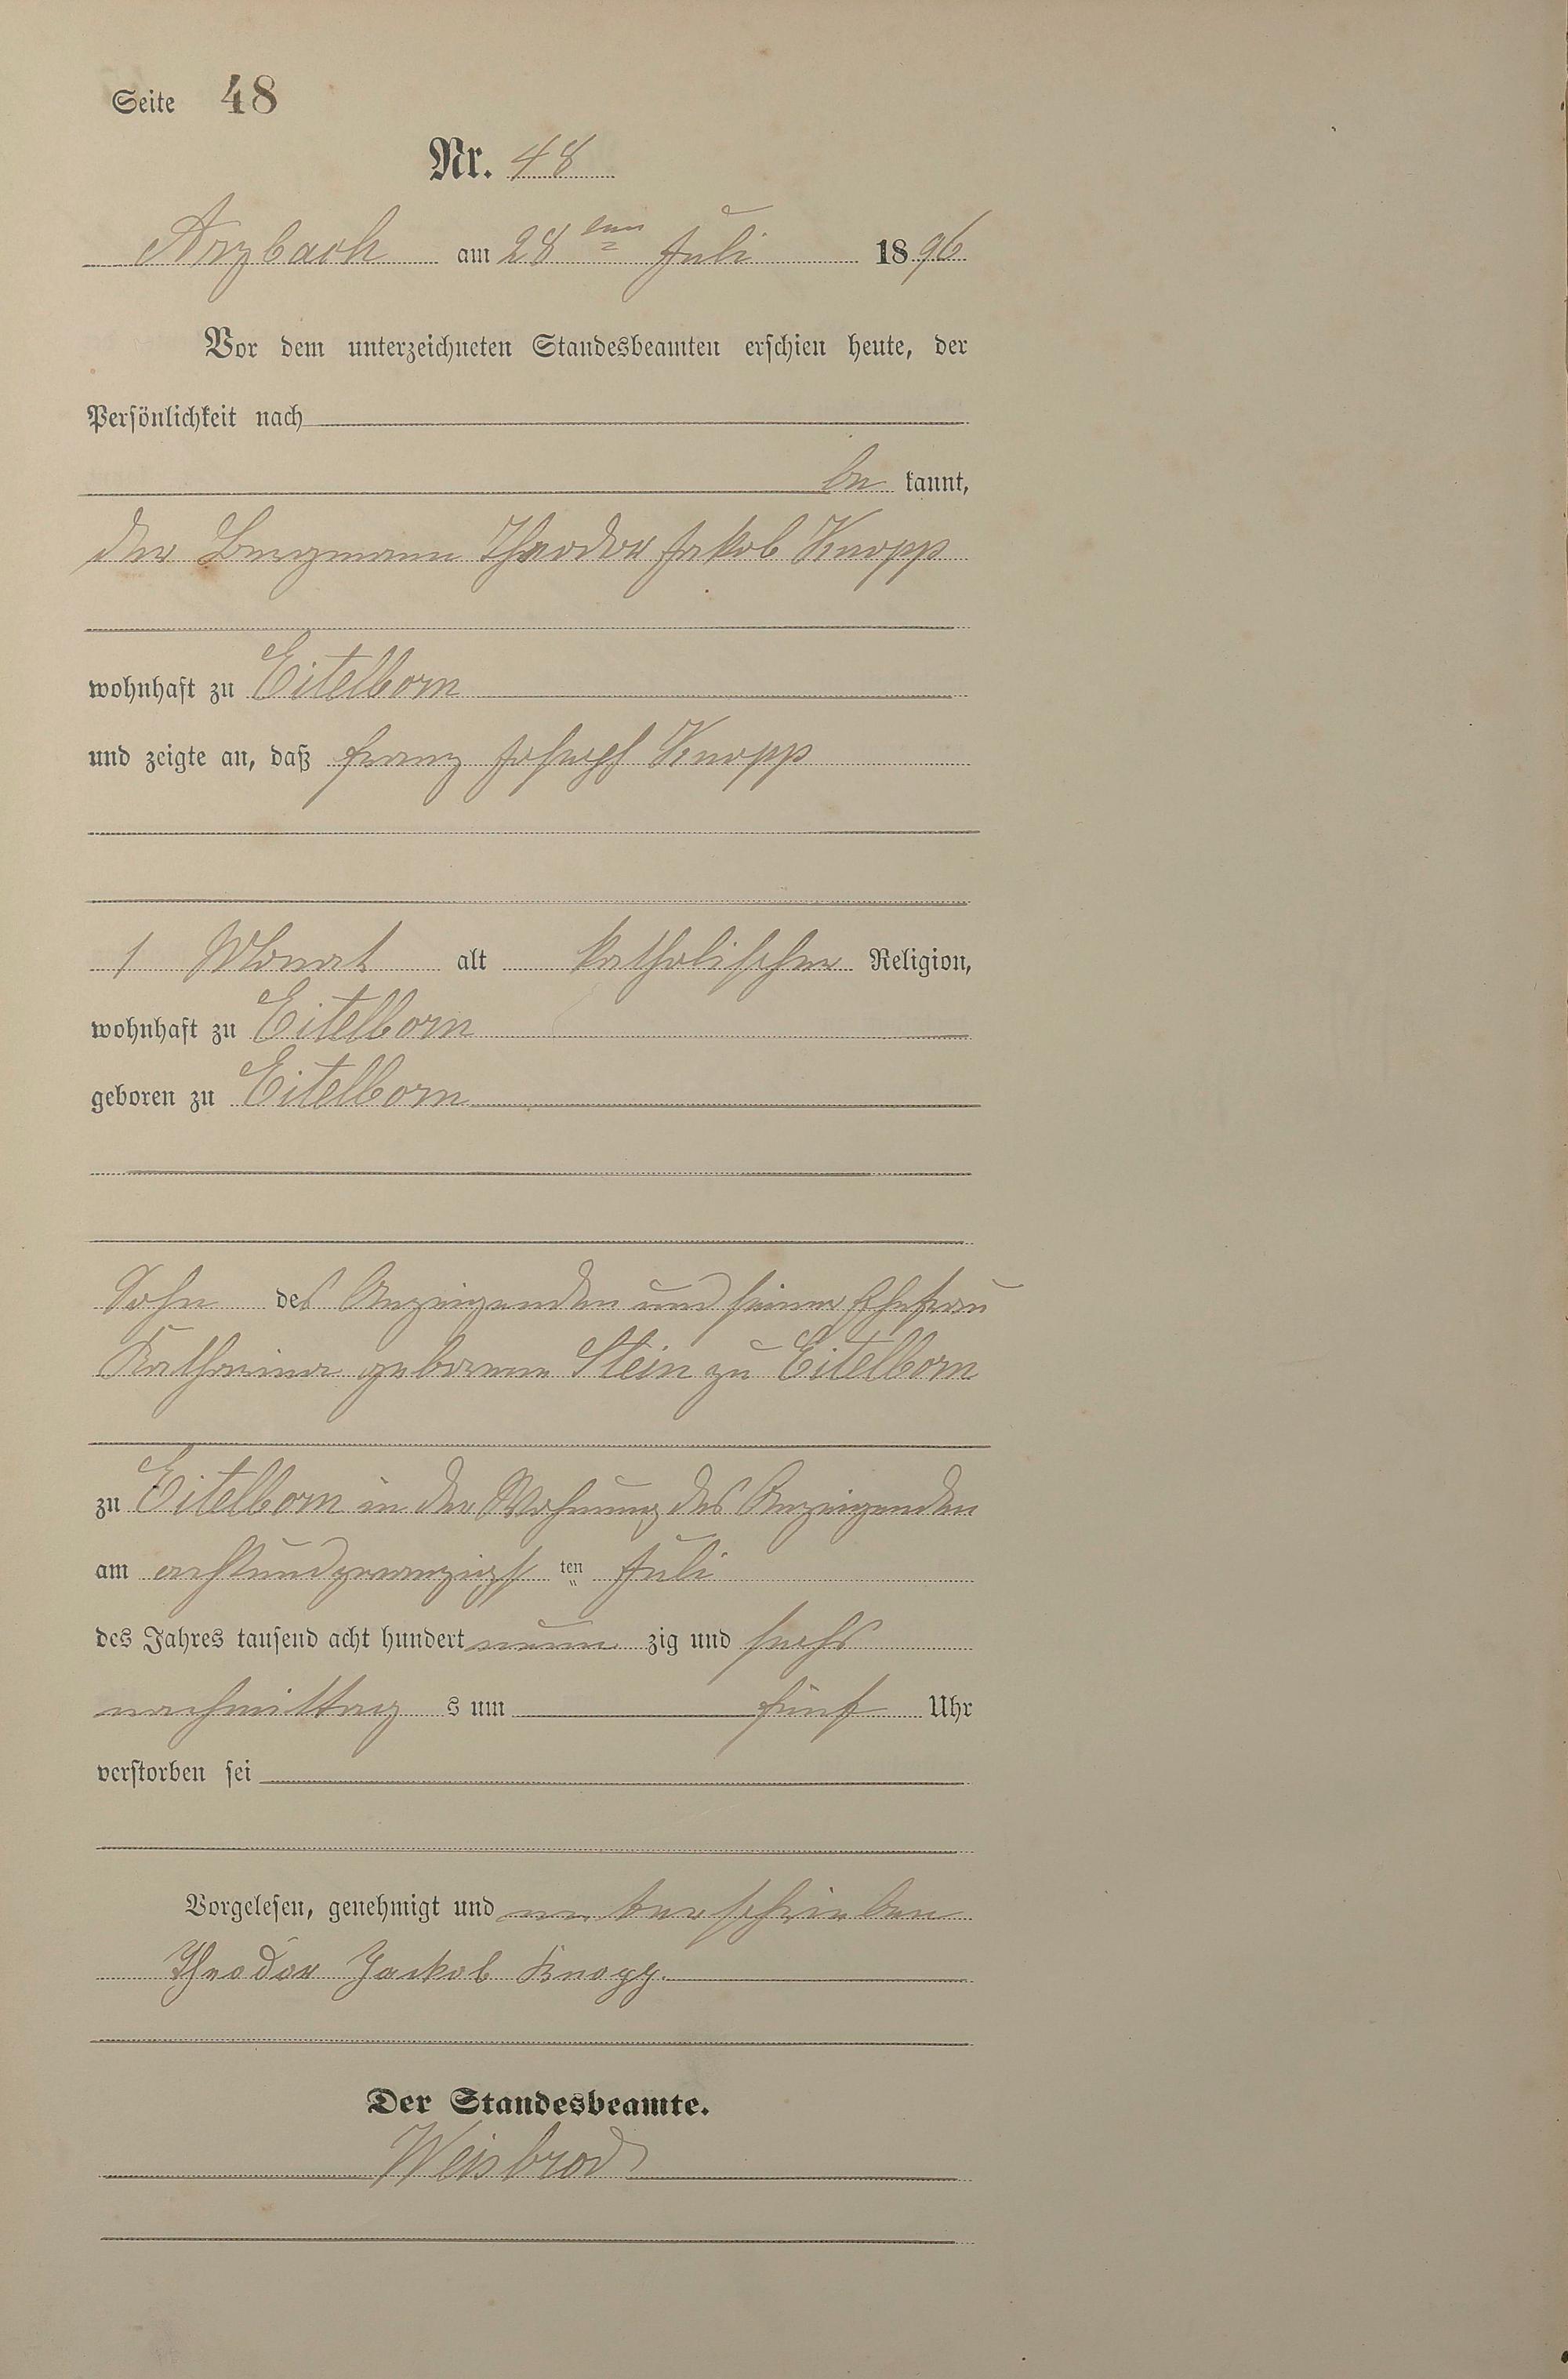 Seite 48
Nr. 48
Arzbach am 28 ten Juli 1896
Vor dem unterzeichneten Standesbeamten erschien heute, der
Persönlichkeit nach
be kannt,
der Bergmann Theodor Jakob Knopp
wohnhaft zu Eitelborn
und zeigte an, daß Franz Joseph Knopp
1 Monat alt katholischer Religion,
wohnhaft zu Eitelborn
geboren zu Eitelborn
Sohn des Anzeigenden und seiner Ehefrau
Katharina geborene Stein zu Eitelborn
zu Eitelborn in der Wohnung des Anzeigenden
am achtundzwanzigst ten Juli
des Jahres tausend acht hundert neun zig und sechs
nachmittag s um fünf Uhr
verstorben sei
Vorgelesen, genehmigt und unterschrieben
Theodor Jackob Knopp.
Der Standesbeamte.
Weisbrod